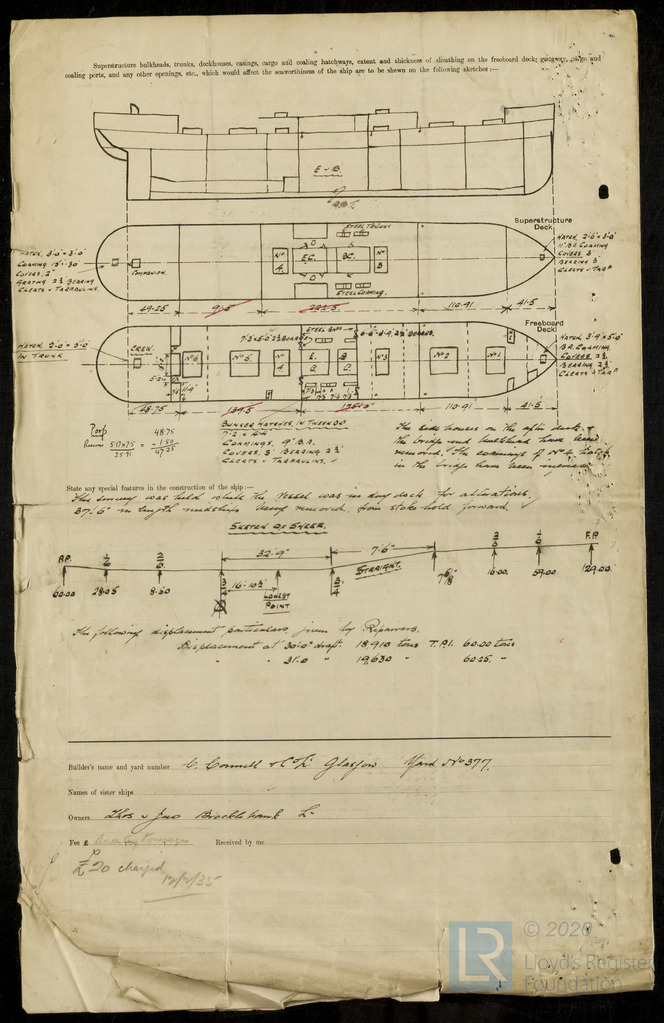 Superstructure bulkheads, trunks, deckhouses, casings, cargo and coaling hatchways, extent and thickness of sheathing on the freeboard deck; gangway, cargo and
coaling ports, and any other openings, etc., which would affect the seaworthiness of the ship are to be shewn on the following sketches:—
E - B.
Superstructure
Deck
STEEL TRUNKS
HATCH, 3'-0" × 3'-0"
COAMING 15" × .30
COVERS. 2"
GRATING 2½ BEARING
CLEATS & TARPAULINS.
COMPANION.
Nº 4.
E.C.
B.C.
Nº 3
STEEL COAMING.
HATCH, 2'-6" × 3'-0"
11" B.A COAMING
COVERS 3"
BEARING 3"
CLEATS & TARPS
49.25
91.5
222.5
110.91
41.5
Freeboard
Deck
HATCH, 2'-0" × 3'-0"
IN TRUNK
CREW
Nº 6
Nº 5
Nº 4
E.
C.
B.
C.
Nº 3
Nº 2
Nº 1
HATCH, 3'-9" × 5'-0"
B.A. COAMING
COVERS 2½
BEARING 2½
CLEATS & TARPS
48.75
139.5
110.91
41.5
Poop
48.75
- 1.50
47.25
BUNKER HATCHES, IN TWEEN DK
COAMINGS, 9" B.A.
COVERS, 3" BEARING 2½"
CLEATS & TARPAULINS.
The side houses on the after deck &
the bridge end bulkhead have been
removed. The coamings of Nº 4 hatch
in the bridge have been increased
State any special features in the construction of the ship:—
This survey was held while the vessel was in dry dock for alterations,
37'-6" in length midships being removed from stokehold forward.
SKETCH OF SHEER.
32'-9"
7'-6"
A.P.
1/6
2/6
STRAIGHT.
2/6
1/6
F.P.
60.00
28.05
8.50
3/4
16'-10½"
LOWEST
POINT
3/4
16.00
59.00
129.00
The following displacement particulars, given by Repairers.
Displacement at 30'-0" draft. 18,910 tons T.P.I. 60.00 tons
" " 31'.0 " 19,630 " 60.25. "
Builder's name and yard number C. Connell & Co Ld Glasgow Yard Nº 377.
Names of sister ships
Owners Thos & Jno Brocklebank Ld
Fee £
Received by me
£20 charged
12/2/35
LR
© 2020
Lloyd's Register
Foundation